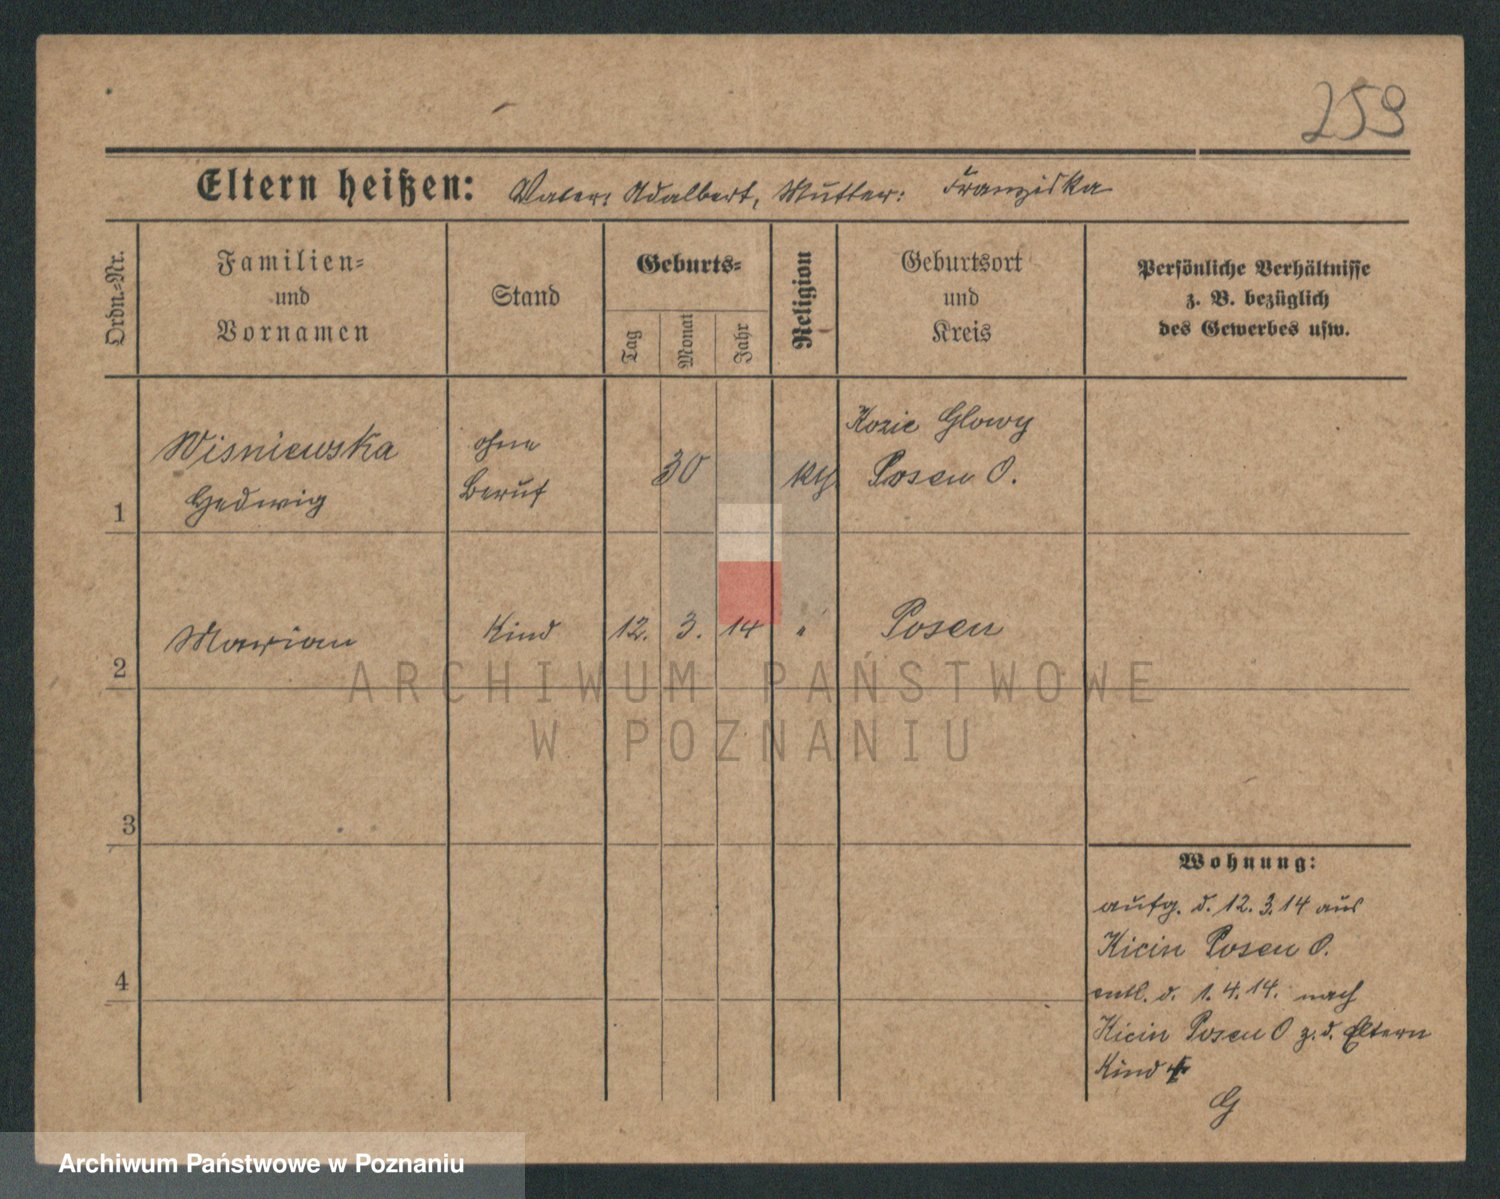 259
Eltern heißen: Vater: Adalbert, Mutter: Franziska
Ordn.-Nr.
Familien-
und
Vornamen
Stand
Geburts-
Tag
Monat
Jahr
Religion
Geburtsort
und
Kreis
Persönliche Verhältnisse
z. B. bezüglich
des Gewerbes usw.
1
Wisniewska
Hedwig
ohne
Beruf
30
kth
Kozie Glowy
Posen O.
2
Marian
Kind
12. 3. 14
"
Posen
3
4
Wohnung:
aufg. d. 12. 3. 14 aus
Kicin Posen O.
entl. d. 1. 4. 14. nach
Kicin Posen O z. d. Eltern
Kind
G
ARCHIWUM PAŃSTWOWE
W POZNANIU
Archiwum Państwowe w Poznaniu